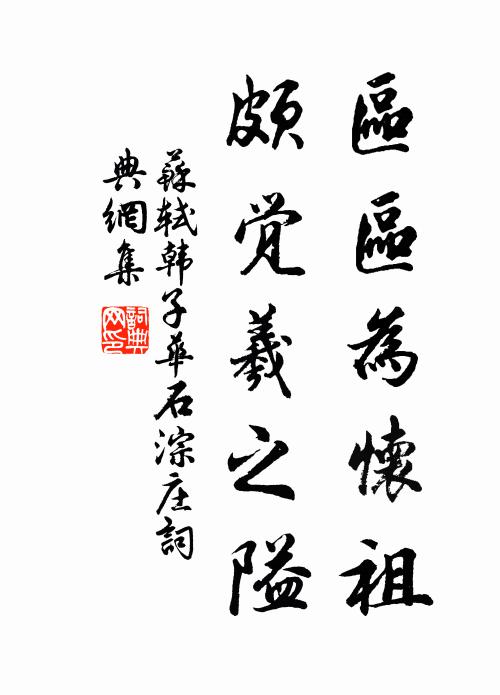 區區為懷祖
頗覺羲之隘
蘇軾韩子華石淙庄詞
典網集
詞典
网印